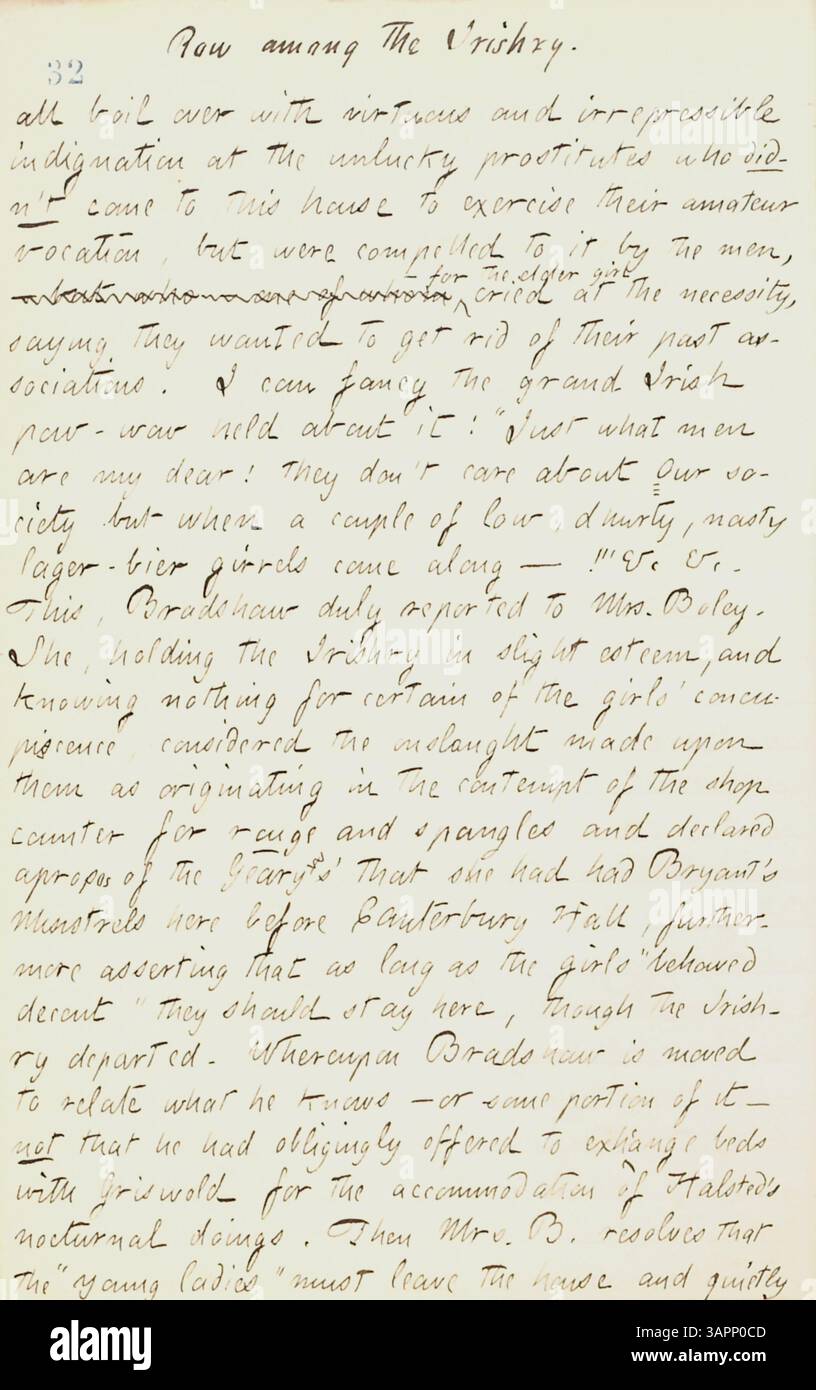 Row among the Irishry.
32
all boil over with virtuous and irrepressible
indignation at the unlucky prostitutes who did-
n't come to this house to exercise their amateur
vocation, but were compelled to it by the men,
for the elder girl
cried at the necessity,
saying they wanted to get rid of their past as-
sociations. I can fancy the grand Irish
pow-wow held about it! "Just what men
are my dear! They don't care about Our so-
ciety but when a couple of low, dhurty, nasty
lager-bier girrels come along — !!" &c &c.
This, Bradshaw duly reported to Mrs. Boley.
She, holding the Irishry in slight esteem, and
knowing nothing for certain of the girls' concu-
piscence, considered the onslaught made upon
them as originating in the contempt of the shop
counter for rouge and spangles and declared
apropos of the Geary's' that she had had Bryant's
Minstrels here before Canterbury Hall, further-
more asserting that as long as the girls "behaved
decent" they should stay here, though the Irish-
ry departed. Whereupon Bradshaw is moved
to relate what he knows — or some portion of it —
not that he had obligingly offered to exhange beds
with Griswold for the accommodation of Halsted's
nocturnal doings. Then Mrs. B. resolves that
the "young ladies" must leave the house and quietly
alamy
Image ID: 3APP0CD
www.alamy.com